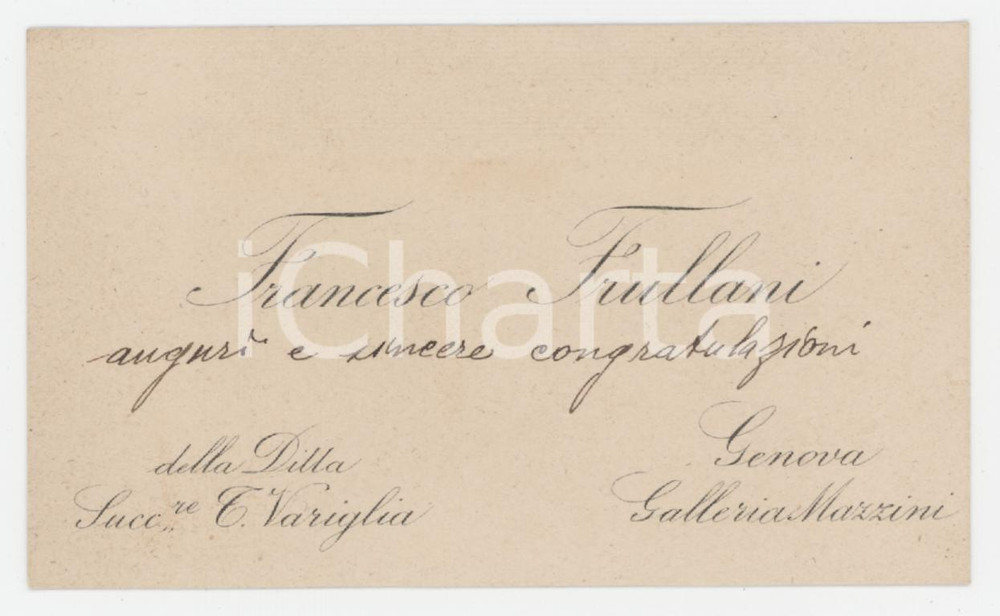 Francesco Frullani
auguri e sincere congratulazioni
della Ditta
Succ.re T. Variglia
Genova
Galleria Mazzini
iCharta